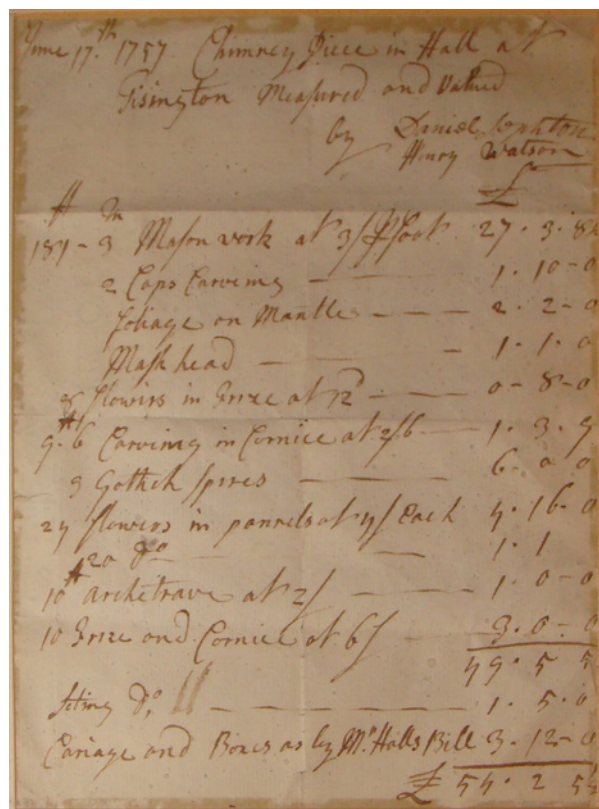 June 17th. 1757 Chimney Piece in Hall at
Tisington Measured and Valued
by Daniel Sephton
Henry Watson
£
ft In
181 - 3 Mason work at 3/ P foot 27 . 3 . 8
2 Caps Carveing 1 . 10 - 0
foliage on Mantle 2 . 2 - 0
Mask head 1 . 1 . 0
8 flowirs in frize at 12d 0 - 8 - 0
9 ft. 6 Carving in Cornice at 2/6 1 . 3 . 9
3 Gothick spires 6 - 0 0
24 flowirs in pannels at 4/ Each 4 . 16 - 0
20 do 1 . 1
10ft archetrave at 2/ 1 . 0 - 0
10 frize and Cornice at 6/ 3 . 0 - 0
49 . 5 5
seting Do. 1 . 5 . 0
Cariage and Boxes as by Mr. Halls Bill 3 . 12 - 0
£ 54 . 2 5